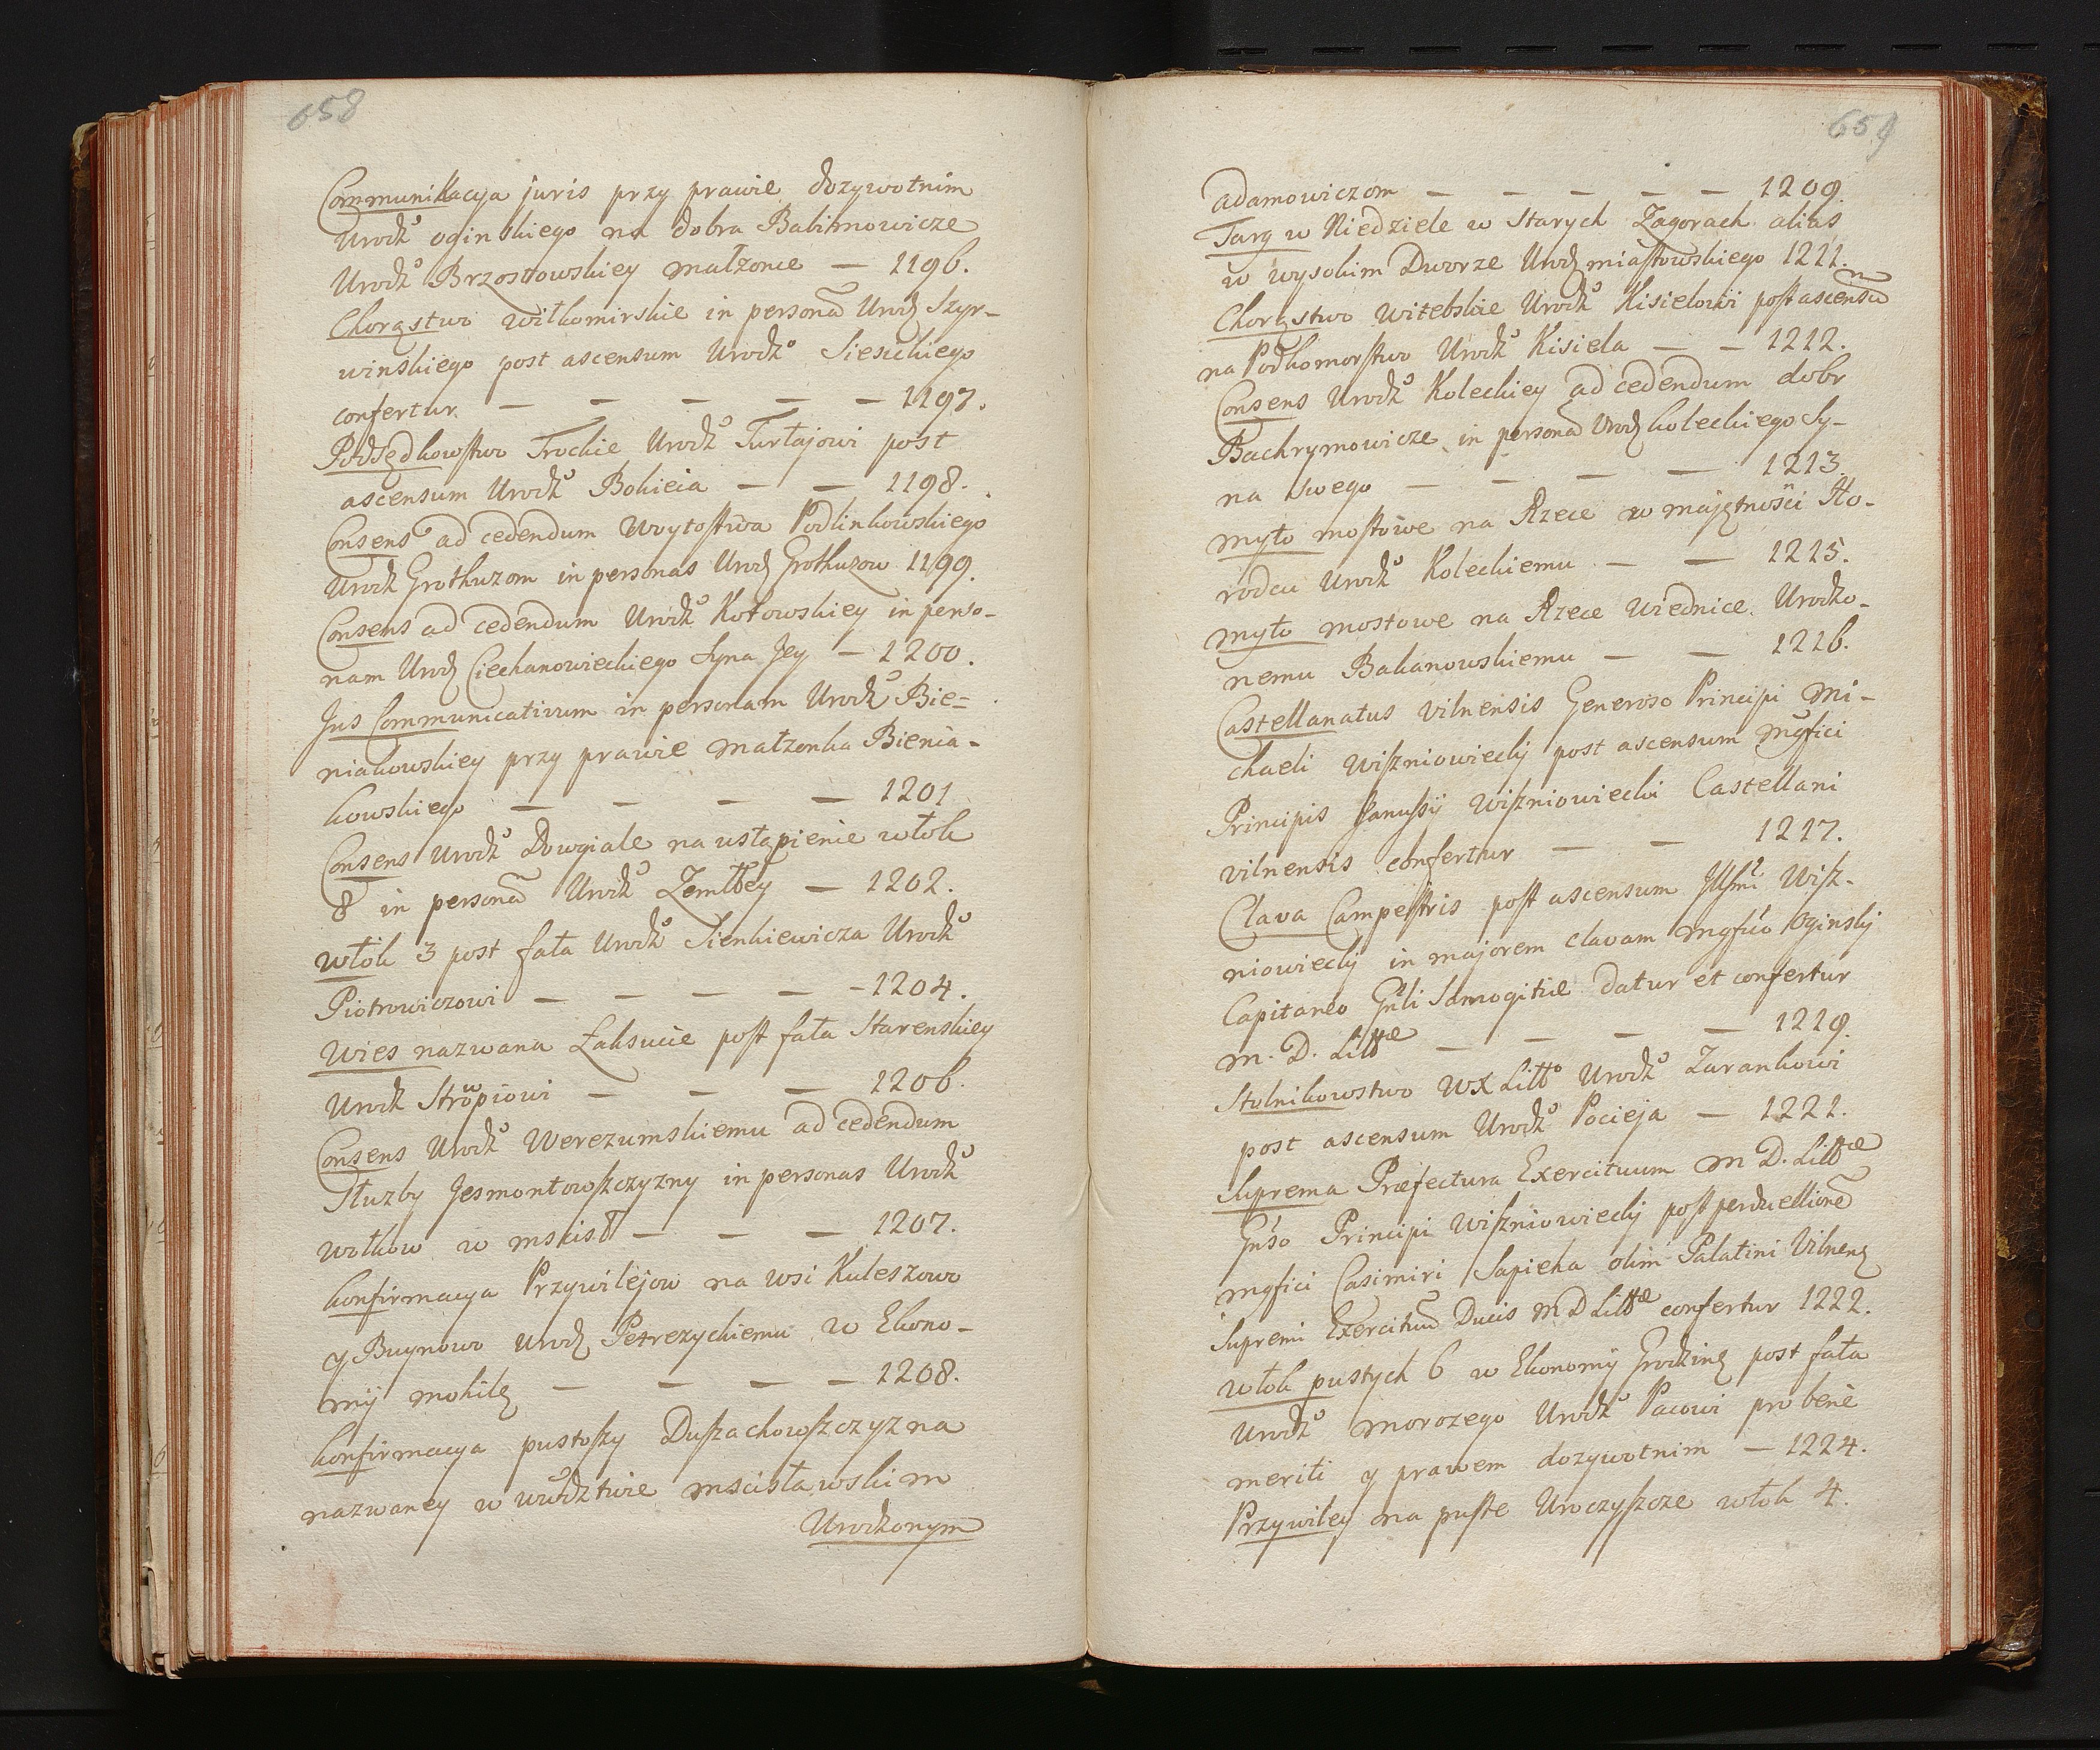 658
Communikacya juris przy prawie dozywotnim
Urodz° oginskiego na dobra Babimowicze
Urodz° Brzostowskiey małzonce — 1196.
Chorąstwo wiłkomirskie in personã Urodz Szyr-
winskiego post ascensum Urodz° Siesickiego
confertur — — — — — 1197.
Podsędkowstwo Trockie Urodz° Turłajowi post
ascensum Urodz° Bokieia — — 1198.
Consens ad cedendum Woytostwa Podlinkowskiego
Urodz Grothuzom in personas Urodz Grothuzow 1199.
Consens ad cedendum Urodz° Kotowskiey in perso-
nam Urodz Ciechanowieckiego Syna Jey — 1200.
Jus Communicativum in personam Urodz° Bie=
niakowskiey przy prawie małzonka Bienia-
kowskiego — — — — 1201
Consens Urodz° Dowgiale na ustąpienie włok
8 in personã Urodz° Zemłłey — 1202.
włok 3 post fata Urodz° Sienkiewicza Urodz°
Piotrowiczowi — — — — 1204.
Wies nazwana Łaksucie post fata Starenskiey
Urodz Stropiowi — — — 1206.
Consens Urodz° Werezumskiemu ad cedendum
Słuzby Jesmontowszczyzny in personas Urodz°
wołkow w mscisł — — — 1207.
konfirmacya Przywilejow na wsi Kuleszowo
y Buynowo Urodz Petrezyckiemu w Ekono-
mij mohilę — — — — 1208.
konfirmacya pustoszy Duszachowszczyzna
nazwaney w wudztwie mscisławskim
Urodzonym
659
adamowiczom — — — — — 1209.
Targ w Niedziele w Starych Zagorach alias
w wysokim Dworze Urodz miastowskiego 1211.
Chorąstwo witebskie Urodz° Kisielowi post ascensũ
na Podkomorstwo Urodz° Kisiela — — 1212.
Consens Urodz° Koleckiey ad cedendum dobr
Bachrymowicze in personã Urodz koleckiego Sy-
na swego — — — — 1213.
myto mostowe na Rzece w majętności Ho-
rodcu Urodz° Koleckiemu — — 1215.
myto mostowe na Rzece Wiednice Urodzo-
nemu Bakanowskiemu — — 1216.
Castellanatus vilnensis Generoso Principi Mi-
chaeli wiszniowiecky post ascensum mgfici
Principis Janussij wiszniowiecki Castellani
vilnensis confertur — — 1217.
Clava Campestris post ascensum Illsmi Wisz-
niowiecky in majorem clavam mgfico Oginsky
Capitaneo Gnli Samogitiæ datur et confertur
M. D. Littæ — — — — 1219.
Stolnikowstwo WX Litt° Urodz° Zarankowi
post ascensum Urodz° Pocieja — 1221.
Suprema Præfectura Exercituum M D. Littæ
Gnso Principi Wiszniowiecky post perduellionẽ
mgfici Casimiri Sapieha olim Palatini Vilnens
Supremi Exercituũ Ducis M D Littæ confertur 1222.
włok pustych 6 w Ekonomij Grodzins post fata
Urodz° morozego Urodz° Pacowi pro bene
meriti y prawem dozywotnim — 1224.
Przywiley na puste Uroczyszcze włok 4.